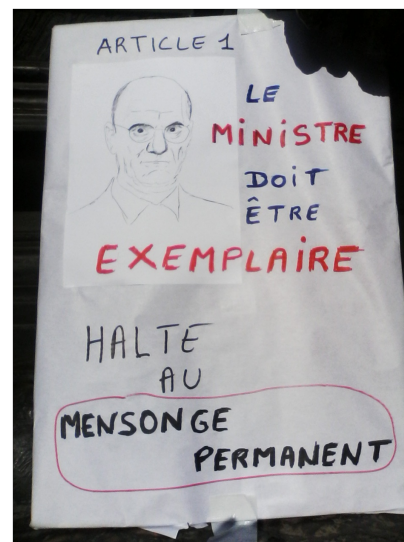 ARTICLE 1
LE
MINISTRE
DOIT
ÊTRE
EXEMPLAIRE
HALTE
AU
MENSONGE
PERMANENT